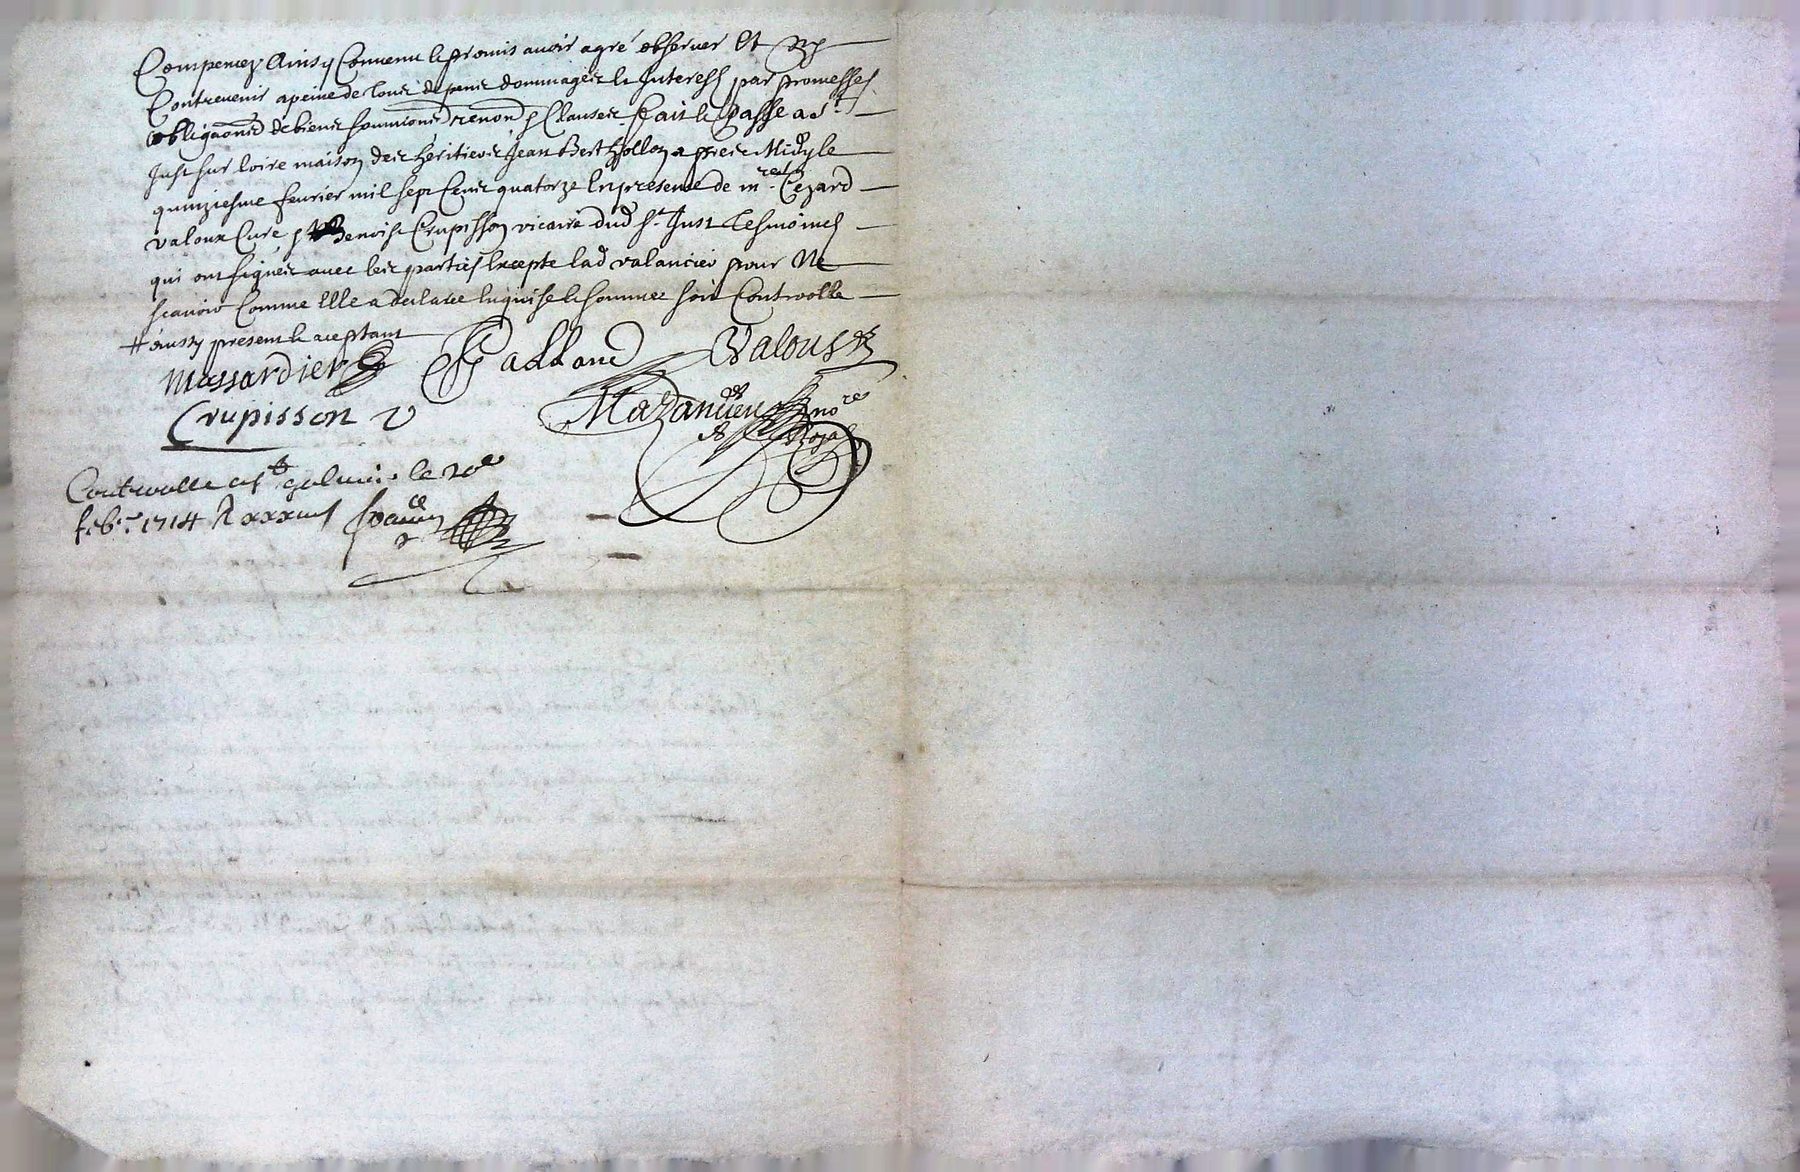 Compencez Ainsy Convenu & promis avoir agré observer Et ny
Contrevenir a peine de tous depens dommages & Interest par promesses
obligaons de biens soumions renons & Clauses fait & Passé a St
Just sur loire maison des heritiers Jean Berthollon apres Midy le
quinziesme fevrier mil sept Cens quatorze En presence de mre Cezard
valoux Curé & Benoist Crupisson vicaire dud St Just Tesmoins
qui ont signés avec les parties Excepté lad valancier pour Ne
scavoir Comme Elle a declaré Enquise & sommée soit Controllé
# aussy present & aceptant
Massardier Galland Valous
Crupisson v Mazancieu nore
Royal
Controllé a St galmier le 20e
feb. 1714 R